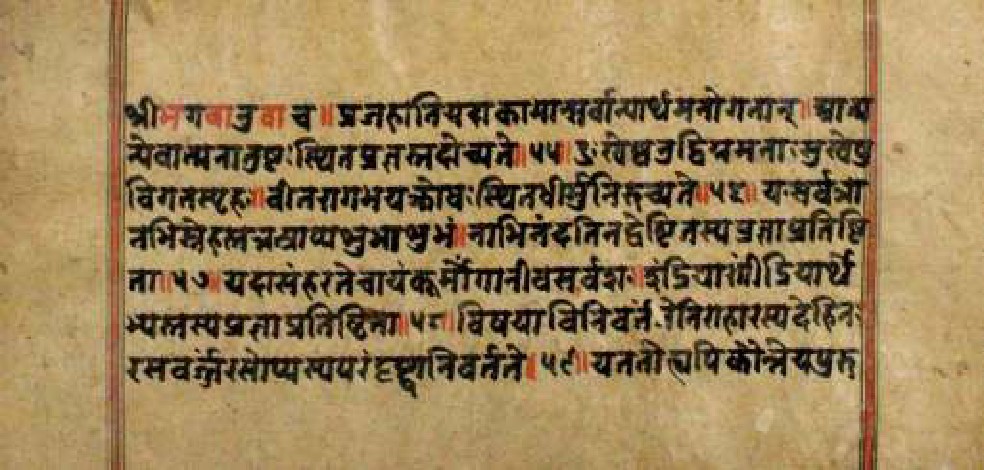 श्रीभगवानुवाच॥प्रजहातियदाकामान्सर्वान्पार्थमनोगतान्॥आत्म
न्येवात्मनातुष्टःस्थितप्रज्ञस्तदोच्यते॥५५॥दुःखेष्वनुद्विग्नमनाःसुखेषु
विगतस्पृहः॥वीतरागभयक्रोधःस्थितधीर्मुनिरुच्यते॥५६॥यःसर्वत्रा
नभिस्नेहस्तत्तत्प्राप्यशुभाशुभं॥नाभिनंदतिनद्वेष्टितस्यप्रज्ञाप्रतिष्ठि
ता॥५७॥यदासंहरतेचायंकूर्मोंगानीवसर्वशः॥इंद्रियाणींद्रियार्थे
भ्यस्तस्यप्रज्ञाप्रतिष्ठिता॥५८॥विषयाविनिवर्तंतेनिराहारस्यदेहिनः
रसवर्जंरसोप्यस्यपरंदृष्ट्वानिवर्तते॥५९॥यततोह्यपिकौन्तेयपुरु